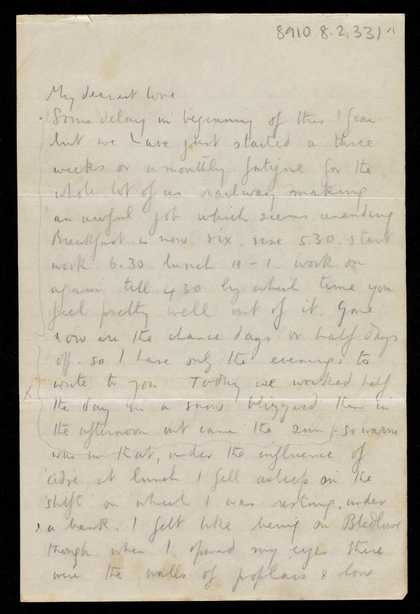 8910 8.2.33/1
My dearest love
Some delay in beginning of this I fear
but we have just started a three
weeks or a monthly fatigue for the
whole lot of us railway making
an awful job which seems unending
Breakfast is now six. rise 5.30 start
work 6.30 lunch 11 - 1 work on
again till 4.30 by which time you
feel pretty well out of it. Gone
now are the chance days or half days
off. so I have only the evenings to
write to you Today we worked half
the day in a snow blizzard then in
the afternoon out came the sun & so warm
was it that, under the influence of
cidre at lunch I fell asleep on the
shelf on which I was resting, under
a bank. I felt like being on
though when I opened my eyes there
were the walls of poplars & low